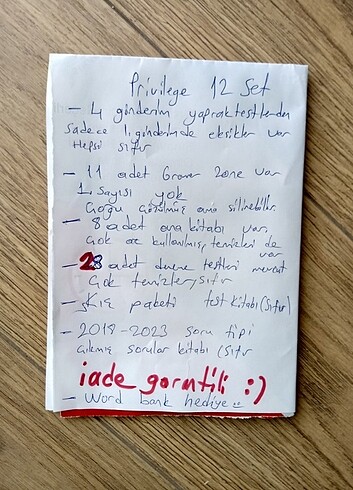 Privilege 12 Set
- 4 gönderim yaprak testlerden
sadece 1. gönderimde eksikler var
Hepsi sıfır
- 11 adet Grower Zone var
1. sayısı yok
Çoğu çözülmüş ama silinebilir.
- 8 adet ana kitabı var,
çok az kullanılmış, temizleri de
var
- 28 adet deneme testleri mevcut
Çok temizler, sıfır
- Kış paketi test kitabı (sıfır)
- 2018-2023 soru tipi
çıkmış sorular kitabı (sıfır
iade garantili :)
- Word bank hediye